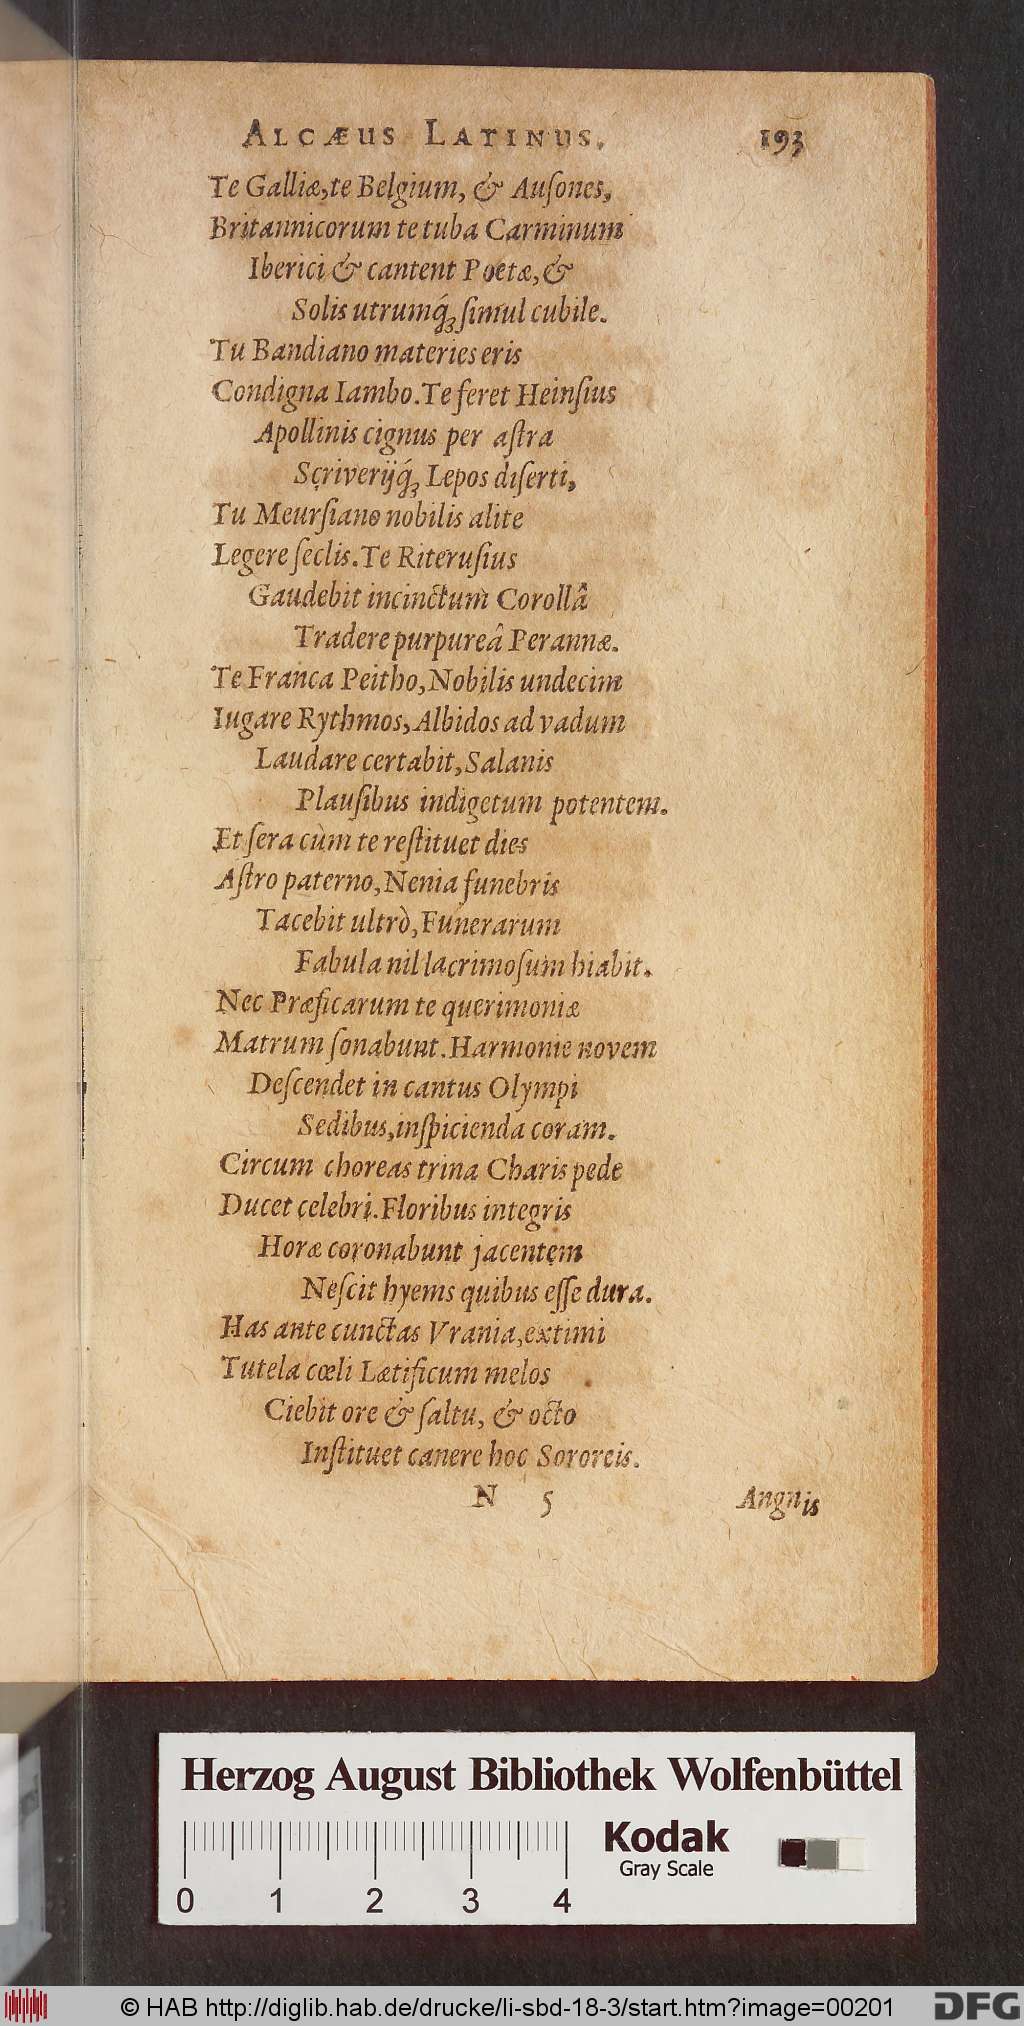 ALCÆUS LATINUS. 193
Te Galliæ, te Belgium, & Auſones,
Britannicorum te tuba Carminum
Iberici & cantent Poetæ, &
Solis utrumq́ꝫ ſimul cubile.
Tu Bandiano materies eris
Condigna Iambo. Te feret Heinſius
Apollinis cignus per aſtra
Scriverijq́ꝫ Lepos diſerti,
Tu Meurſiano nobilis alite
Legere ſeclis. Te Riteruſius
Gaudebit incinctum Corollâ
Tradere purpureâ Perannæ.
Te Franca Peitho, Nobilis undecim
Iugare Rythmos, Albidos ad vadum
Laudare certabit, Salanis
Plauſibus indigetum potentem.
Et ſera cùm te reſtituet dies
Aſtro paterno, Nenia funebris
Tacebit ultrò, Funerarum
Fabula nil lacrimoſum hiabit.
Nec Præficarum te querimoniæ
Matrum ſonabunt. Harmonie novem
Deſcendet in cantus Olympi
Sedibus, inſpicienda coram.
Circum choreas trina Charis pede
Ducet celebri. Floribus integris
Horæ coronabunt jacentem
Neſcit hyems quibus eſſe dura.
Has ante cunctas Vrania, extimi
Tutela cœli Lætificum melos
Ciebit ore & ſaltu, & octo
Inſtituet canere hoc Sororeis.
N 5 Angnis
Herzog August Bibliothek Wolfenbüttel
Kodak
Gray Scale
0 1 2 3 4
© HAB http://diglib.hab.de/drucke/li-sbd-18-3/start.htm?image=00201
DFG